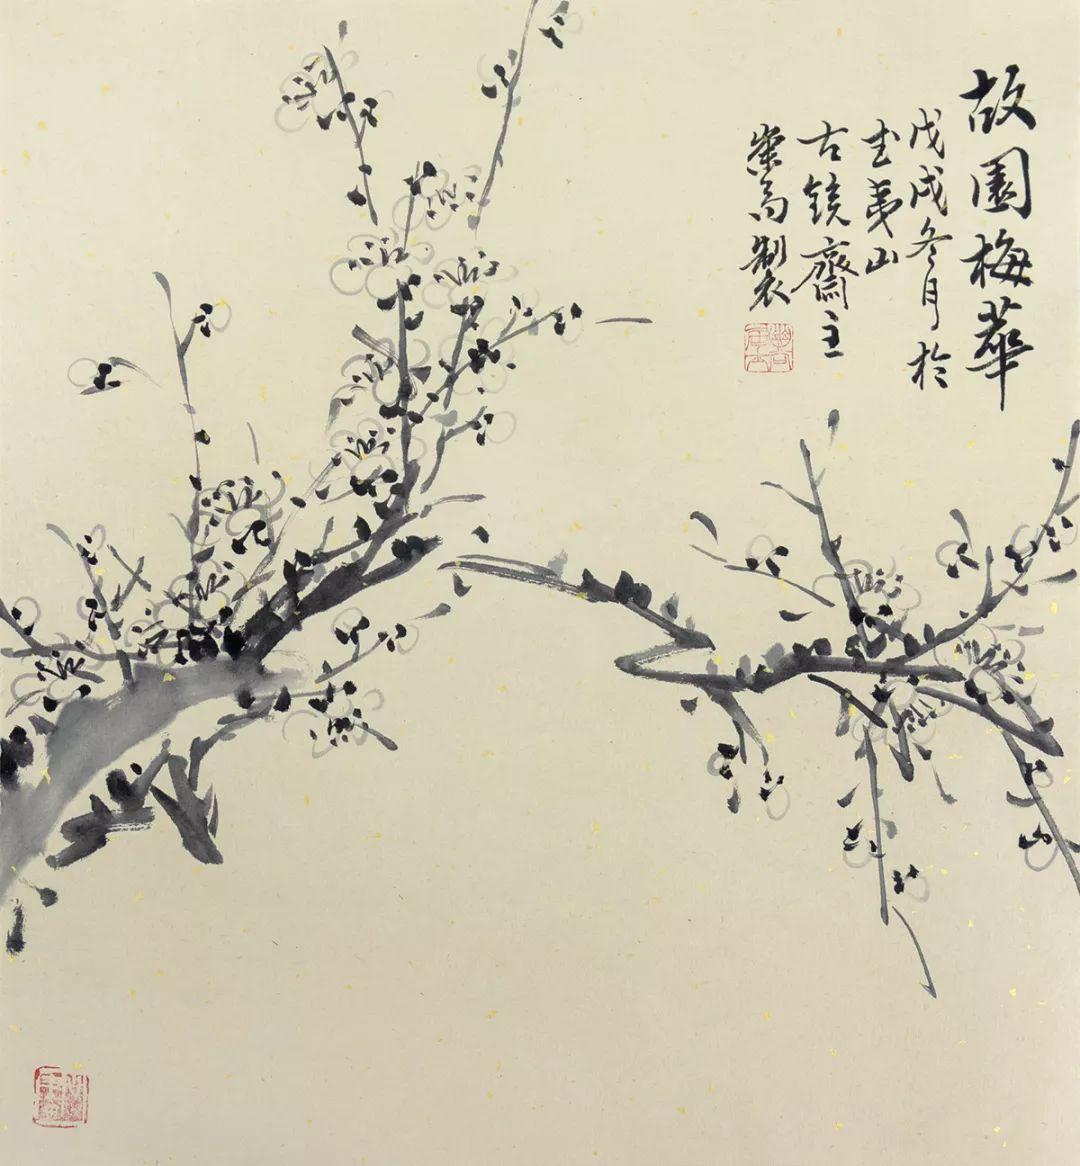 故園梅華
戊戌冬月於
武夷山
古鏡齋主
高製